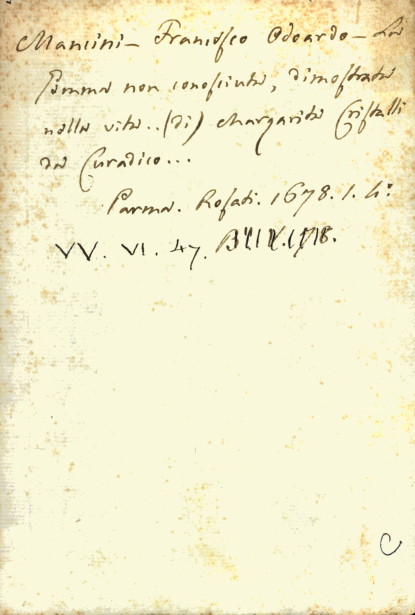 Mancini - Francesco Odoardo - La
Gemma non conosciuta, dimostrata
nella vita.. (di) Margarita Cristalli
da Curadico...
Parma. Rosati. 1678. 1. 4°
VV. VI. 47.
C